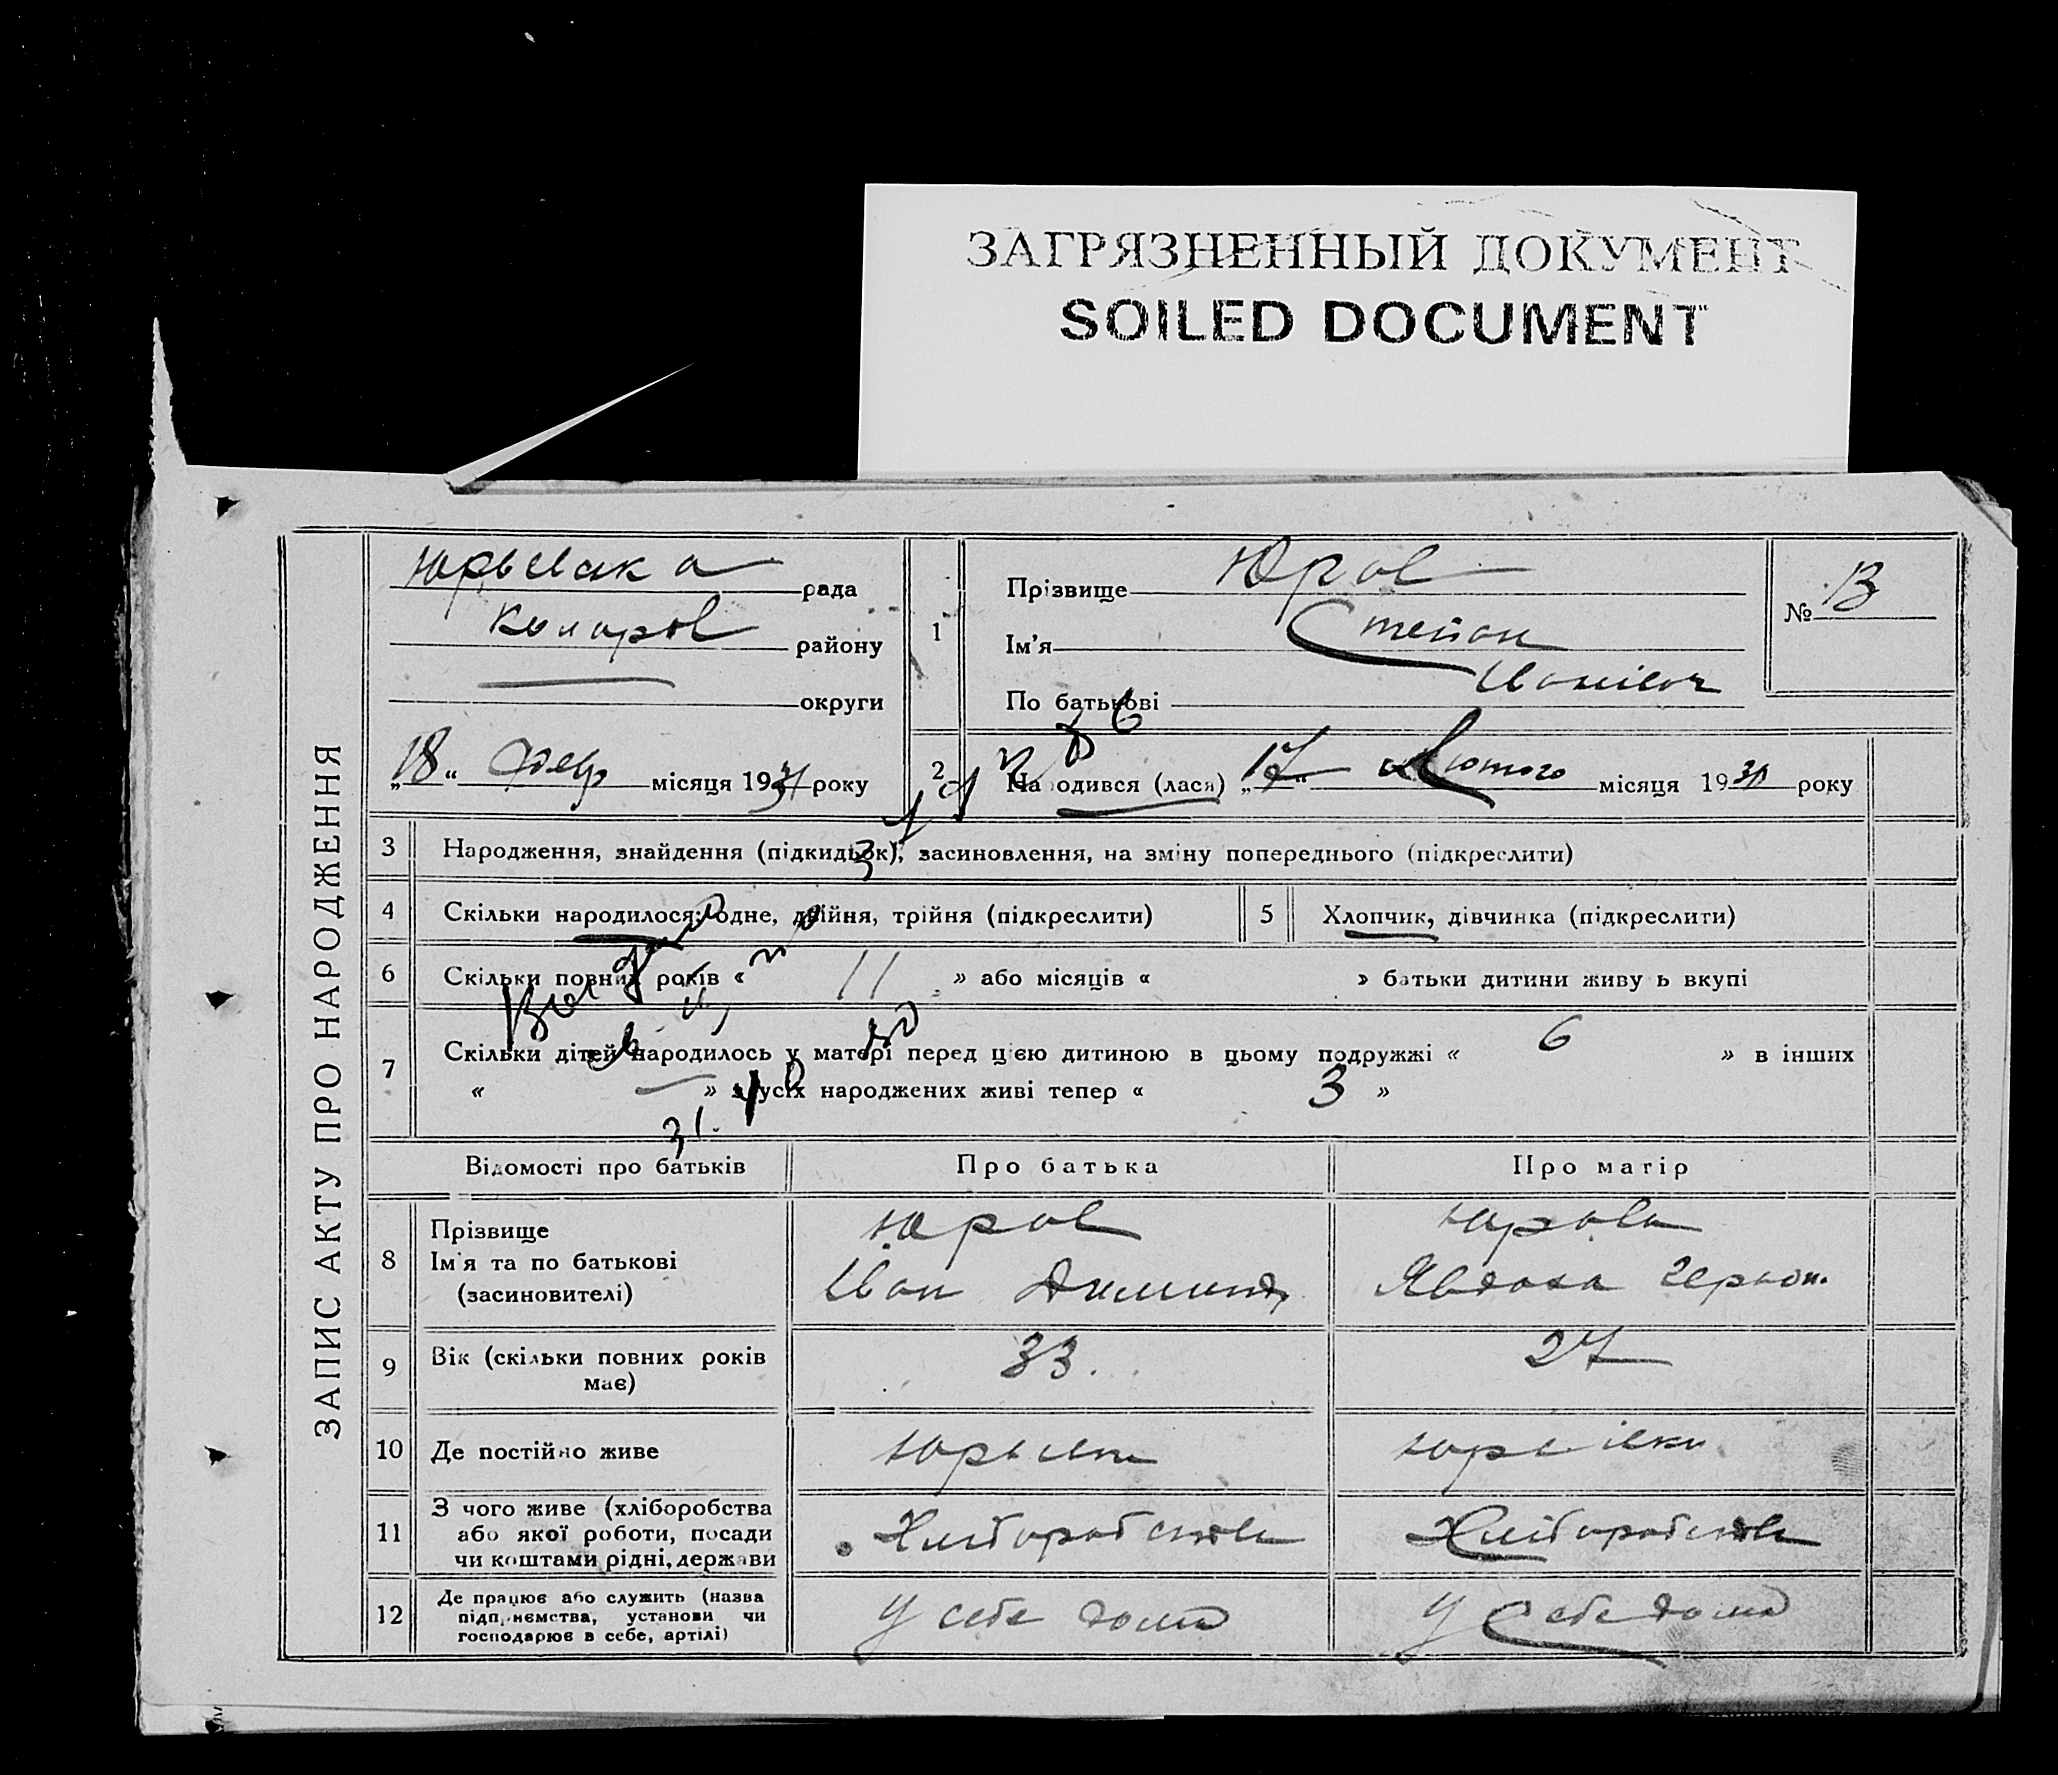 ЗАГРЯЗНЕННЫЙ ДОКУМЕНТ
SOILED DOCUMENT
ЗАПИС АКТУ ПРО НАРОДЖЕННЯ
рада
району
округи
„18“ февр місяця 1931 року
1
Прізвище Юров
Ім'я Степан
По батькові Иванівич
№ 13
2
Народився (лася) „17“ Лютого місяця 1931 року
3 Народження, знайдення (підкидьок), засиновлення, на зміну попереднього (підкреслити)
4 Скільки народилося: одне, двійня, трійня (підкреслити)
5 Хлопчик, дівчинка (підкреслити)
6 Скільки повних років « 11 » або місяців « » батьки дитини живуть вкупі
7 Скільки дітей народилось у матері перед цією дитиною в цьому подружжі « 6 » в інших
« — » з усіх народжених живі тепер « 3 »
Відомості про батьків Про батька Про матір
8 Прізвище
Ім'я та по батькові
(засиновителі)
Юров
Иван
Юрова
Явдоха
9 Вік (скільки повних років
має)
33.
27
10 Де постійно живе
11 З чого живе (хліборобства
або якої роботи, посади
чи коштами рідні, держави
Хліборобства
Хліборобства
12 Де працює або служить (назва
підприємства, установи чи
господарює в себе, артілі)
У себе дома
У себе дома